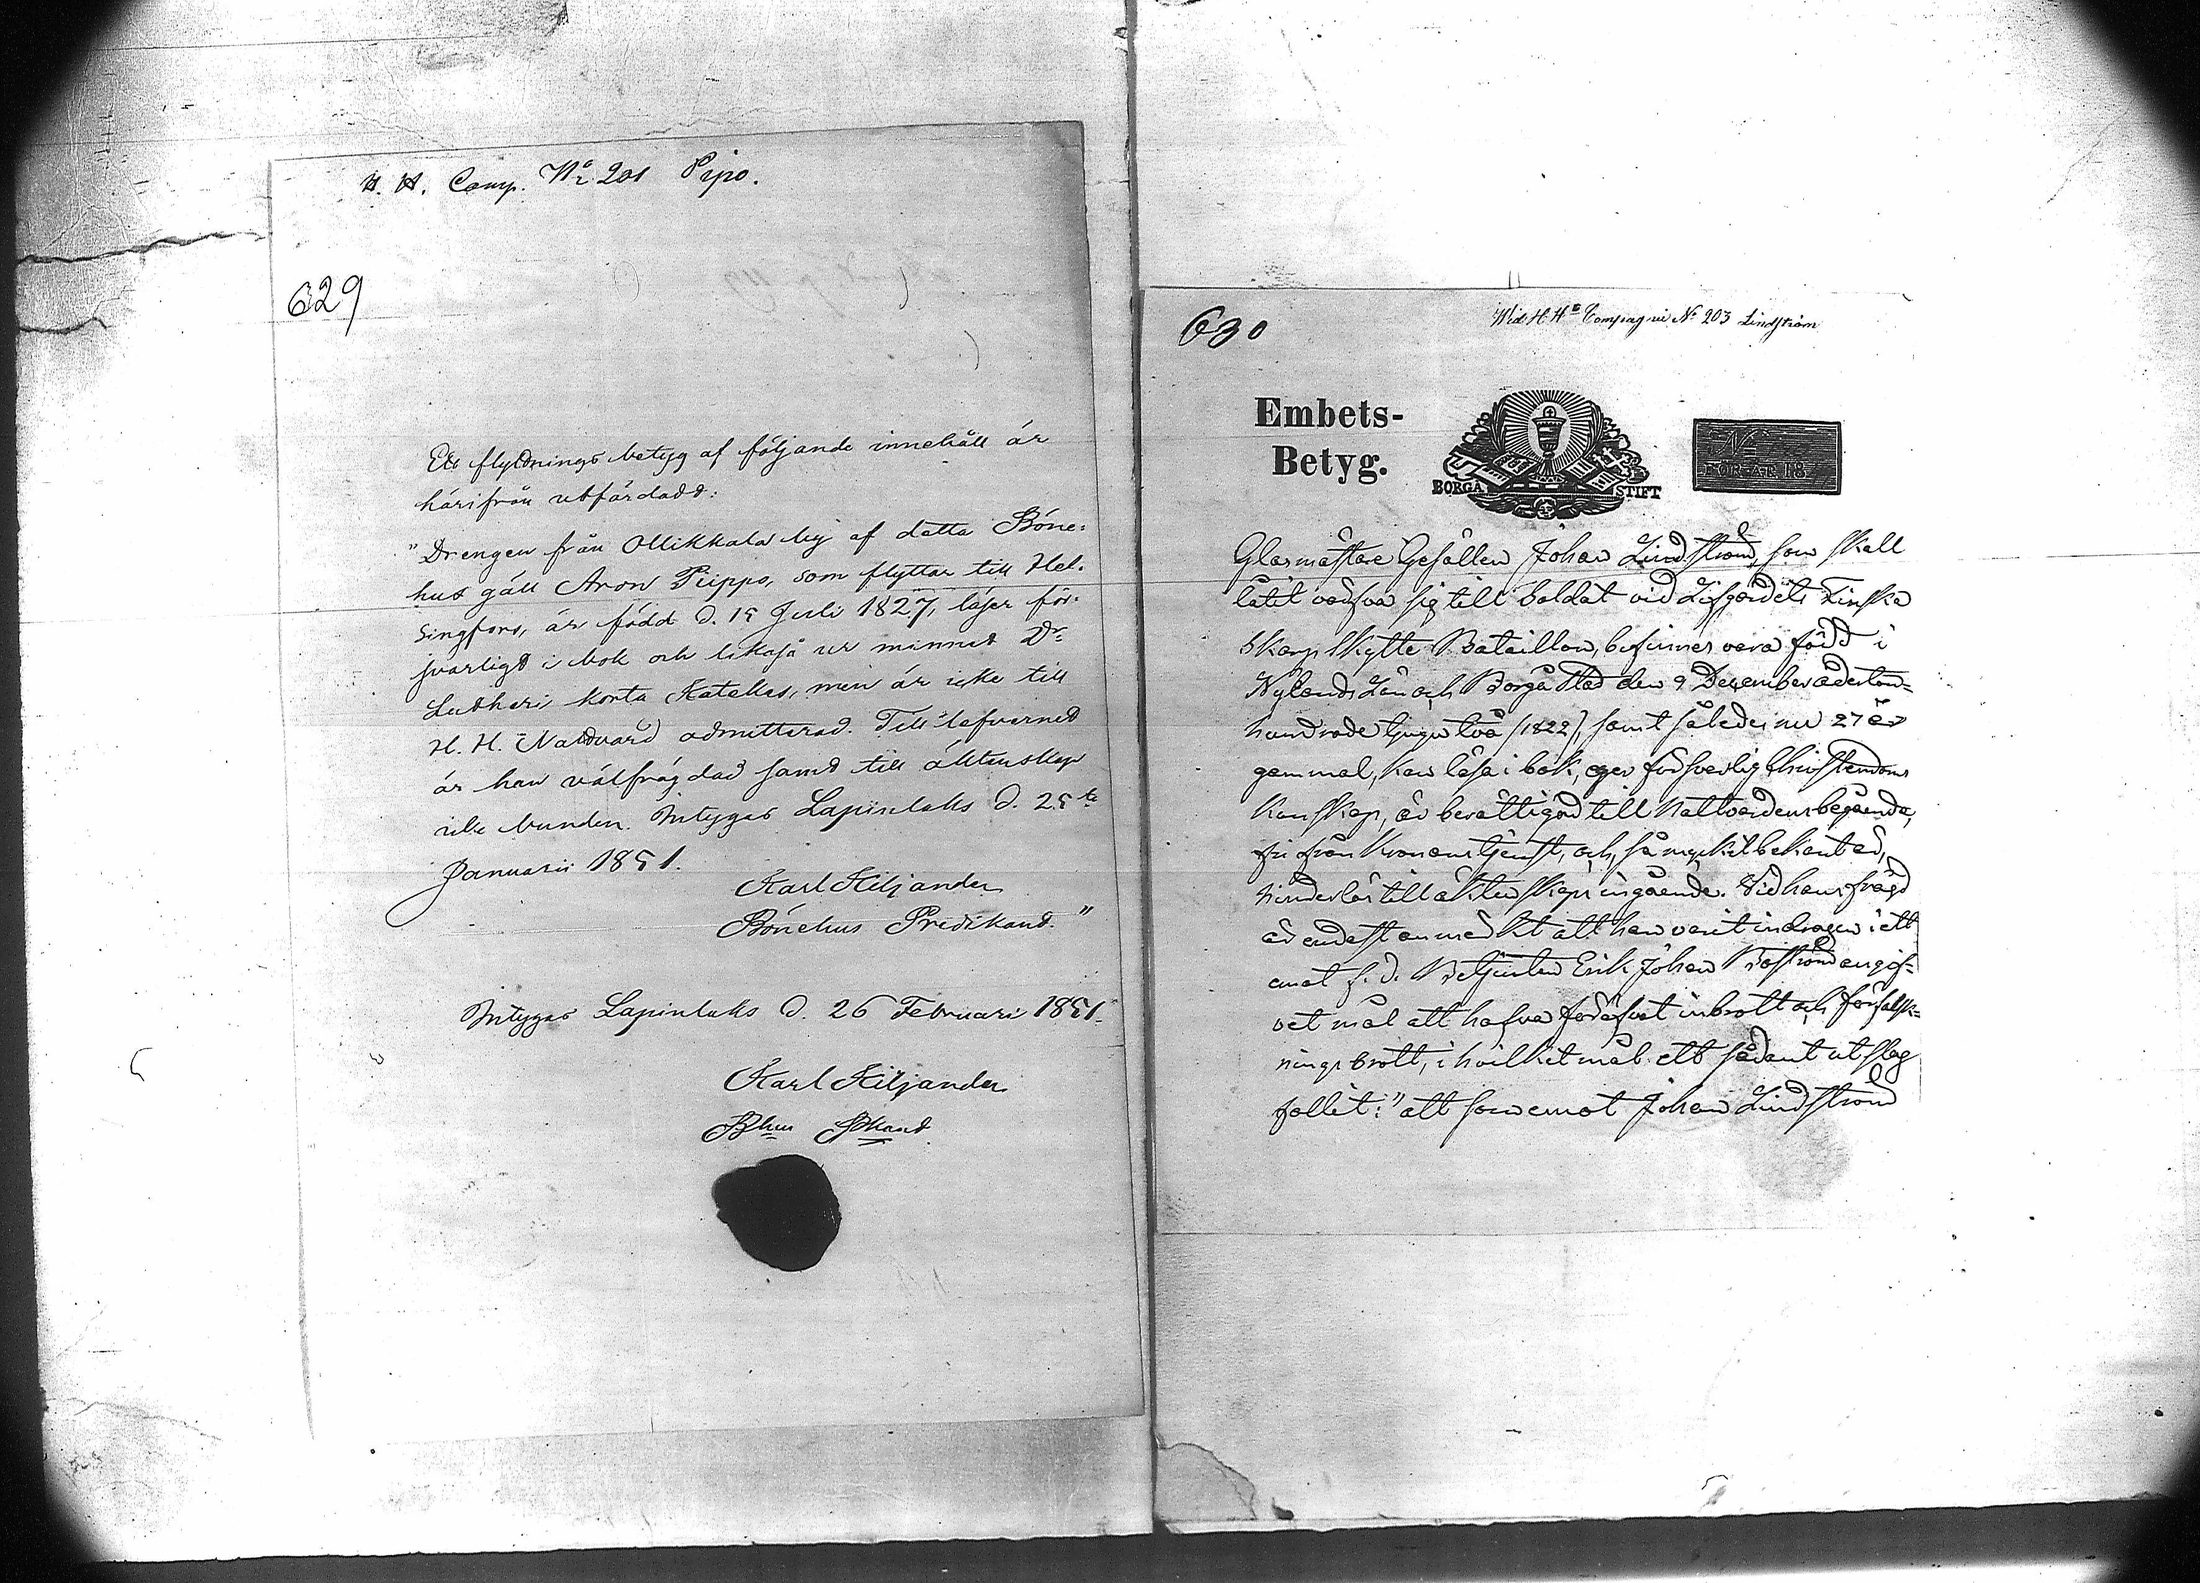 H. H. Comp. No 201 Pipo.
629
Ett flyttnings betyg af följande innehåll är
härifrån utfärdadt:
"Drengen från Ollikkala by af detta Böne-
hus gäll Aron Piippo, som flyttar till Hel-
singfors, är född d. 15 Juli 1827, läser för-
svarligt i bok och likaså ur minnet Dr
Lutheri korta Kateches, men är icke till
H. H. Nattvard admitterad. Till lefvernet
är han välfrägdad samt till äktenskap
icke bunden. Intygas Lapinlaks d. 25te
Januarii 1851.
Karl Kiljander
Bönehus Predikant."
Intygas Lapinlaks d. 26 Februari 1851.
Karl Kiljander
Bhus Pkant.
630
Wid H. Hs Compagnie No 203 Lindström
Embets-
Betyg.
BORGÅ STIFT
No
FÖR ÅR 18
Glasmästare Gesällen Johan Lindström, som skall
låtit värfva sig till Soldat vid Lifgardets Finska
Skarpskytte Bataillon, befinnes vara född i
Nylands Län och Borgå Stad den 9 December aderton-
hundrade tjugu två (1822), samt således nu 27 år
gammal, kan läsa i bok, eger försvarlig Christendoms
kunskap, är berättigad till Nattvardens begående,
fri från Kronans tjenst, och, så mycket bekant är,
hinderlös till äktenskaps ingående. Vid hans frägd
är endast anmärkt att han varit indragen i ett
emot f. d. Betjenten Erik Johan Boström angif-
vet mål att hafva föröfvat inbrott och förfalsk-
nings brott, i hvilket mål ett sådant utslag
fallit: "att som emot Johan Lindström